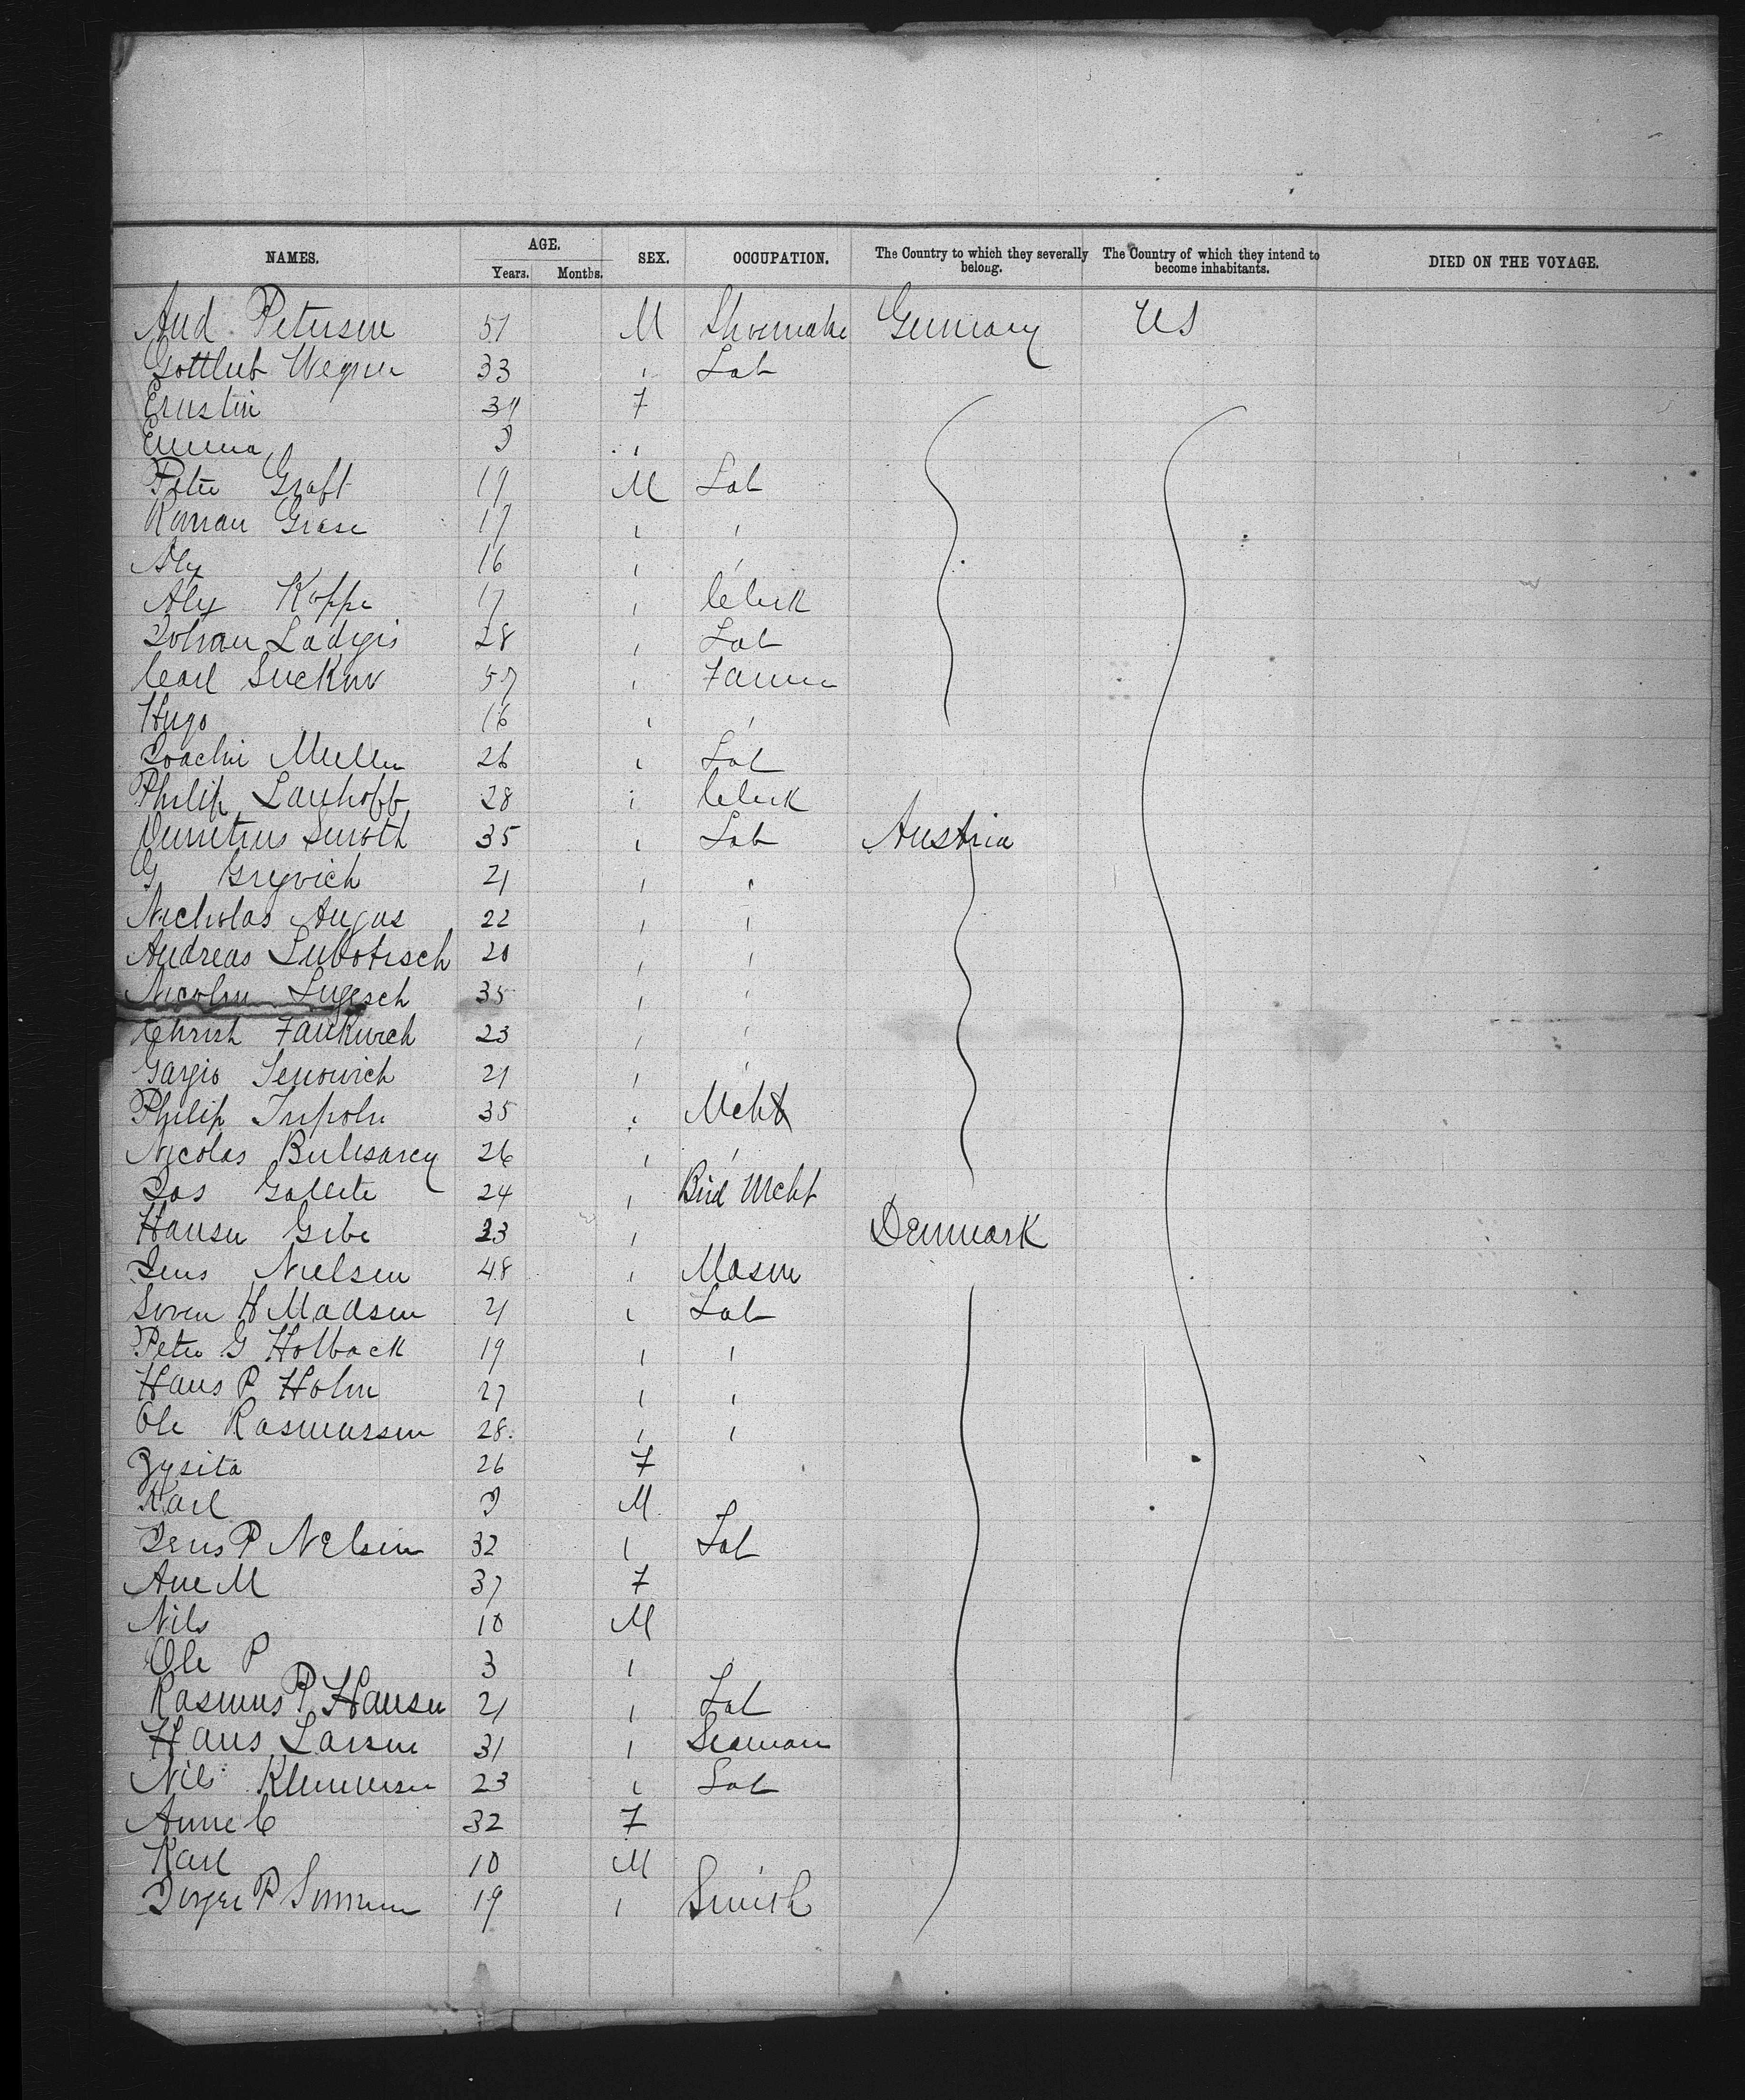 NAMES. AGE. SEX. OCCUPATION. The Country to which they severally belong. The Country of which they intend to become inhabitants. DIED ON THE VOYAGE.
Years. Months.
And Petersen 51 M Shoemake Germany US
Gottlieb Wegner 33 " Lab
Ernstin 34 F
Emma 9 "
Peter Graft 19 M Lab
Roman Grase 17 " "
Alex 16 " "
Alex Koppe 17 " Clerk
Johan Ladyis 28 " Lab
Carl Suckow 57 " Farmer
Hugo 16 " "
Joachim Muller 26 " Lab
Philip Lanhoff 28 " Clerk
Demetrius Smroth 35 " Lab Austria
G Gryvich 21 " "
Nicholas Angus 22 " "
Andreas Lubotisch 20 " "
Nicolin Lugesch 35 " "
Christ Fankwich 23 " "
Gargio Senowich 21 " "
Philip Tripolu 35 " Mcht
Nicolas 26 " "
Jas Gallete 24 " Bird Mcht
Hansen Gibe 23 " Denmark
Jens Nielsen 48 " Mason
Soren H Madsen 21 " Lab
Peter G Holback 19 " "
Hans P Holm 27 " "
Ole Rasmussen 28 " "
Zysita 26 F
Karl 9 M
Jens P Nelsen 32 " Lab
Ane M 37 F
Nils 10 M
Ole P 3 "
Rasmus P Hansen 21 " Lab
Hans Larsen 31 " Seaman
Nils Klemmensen 23 " Lab
Anne C 32 F
Karl 10 M
P 19 " Smith